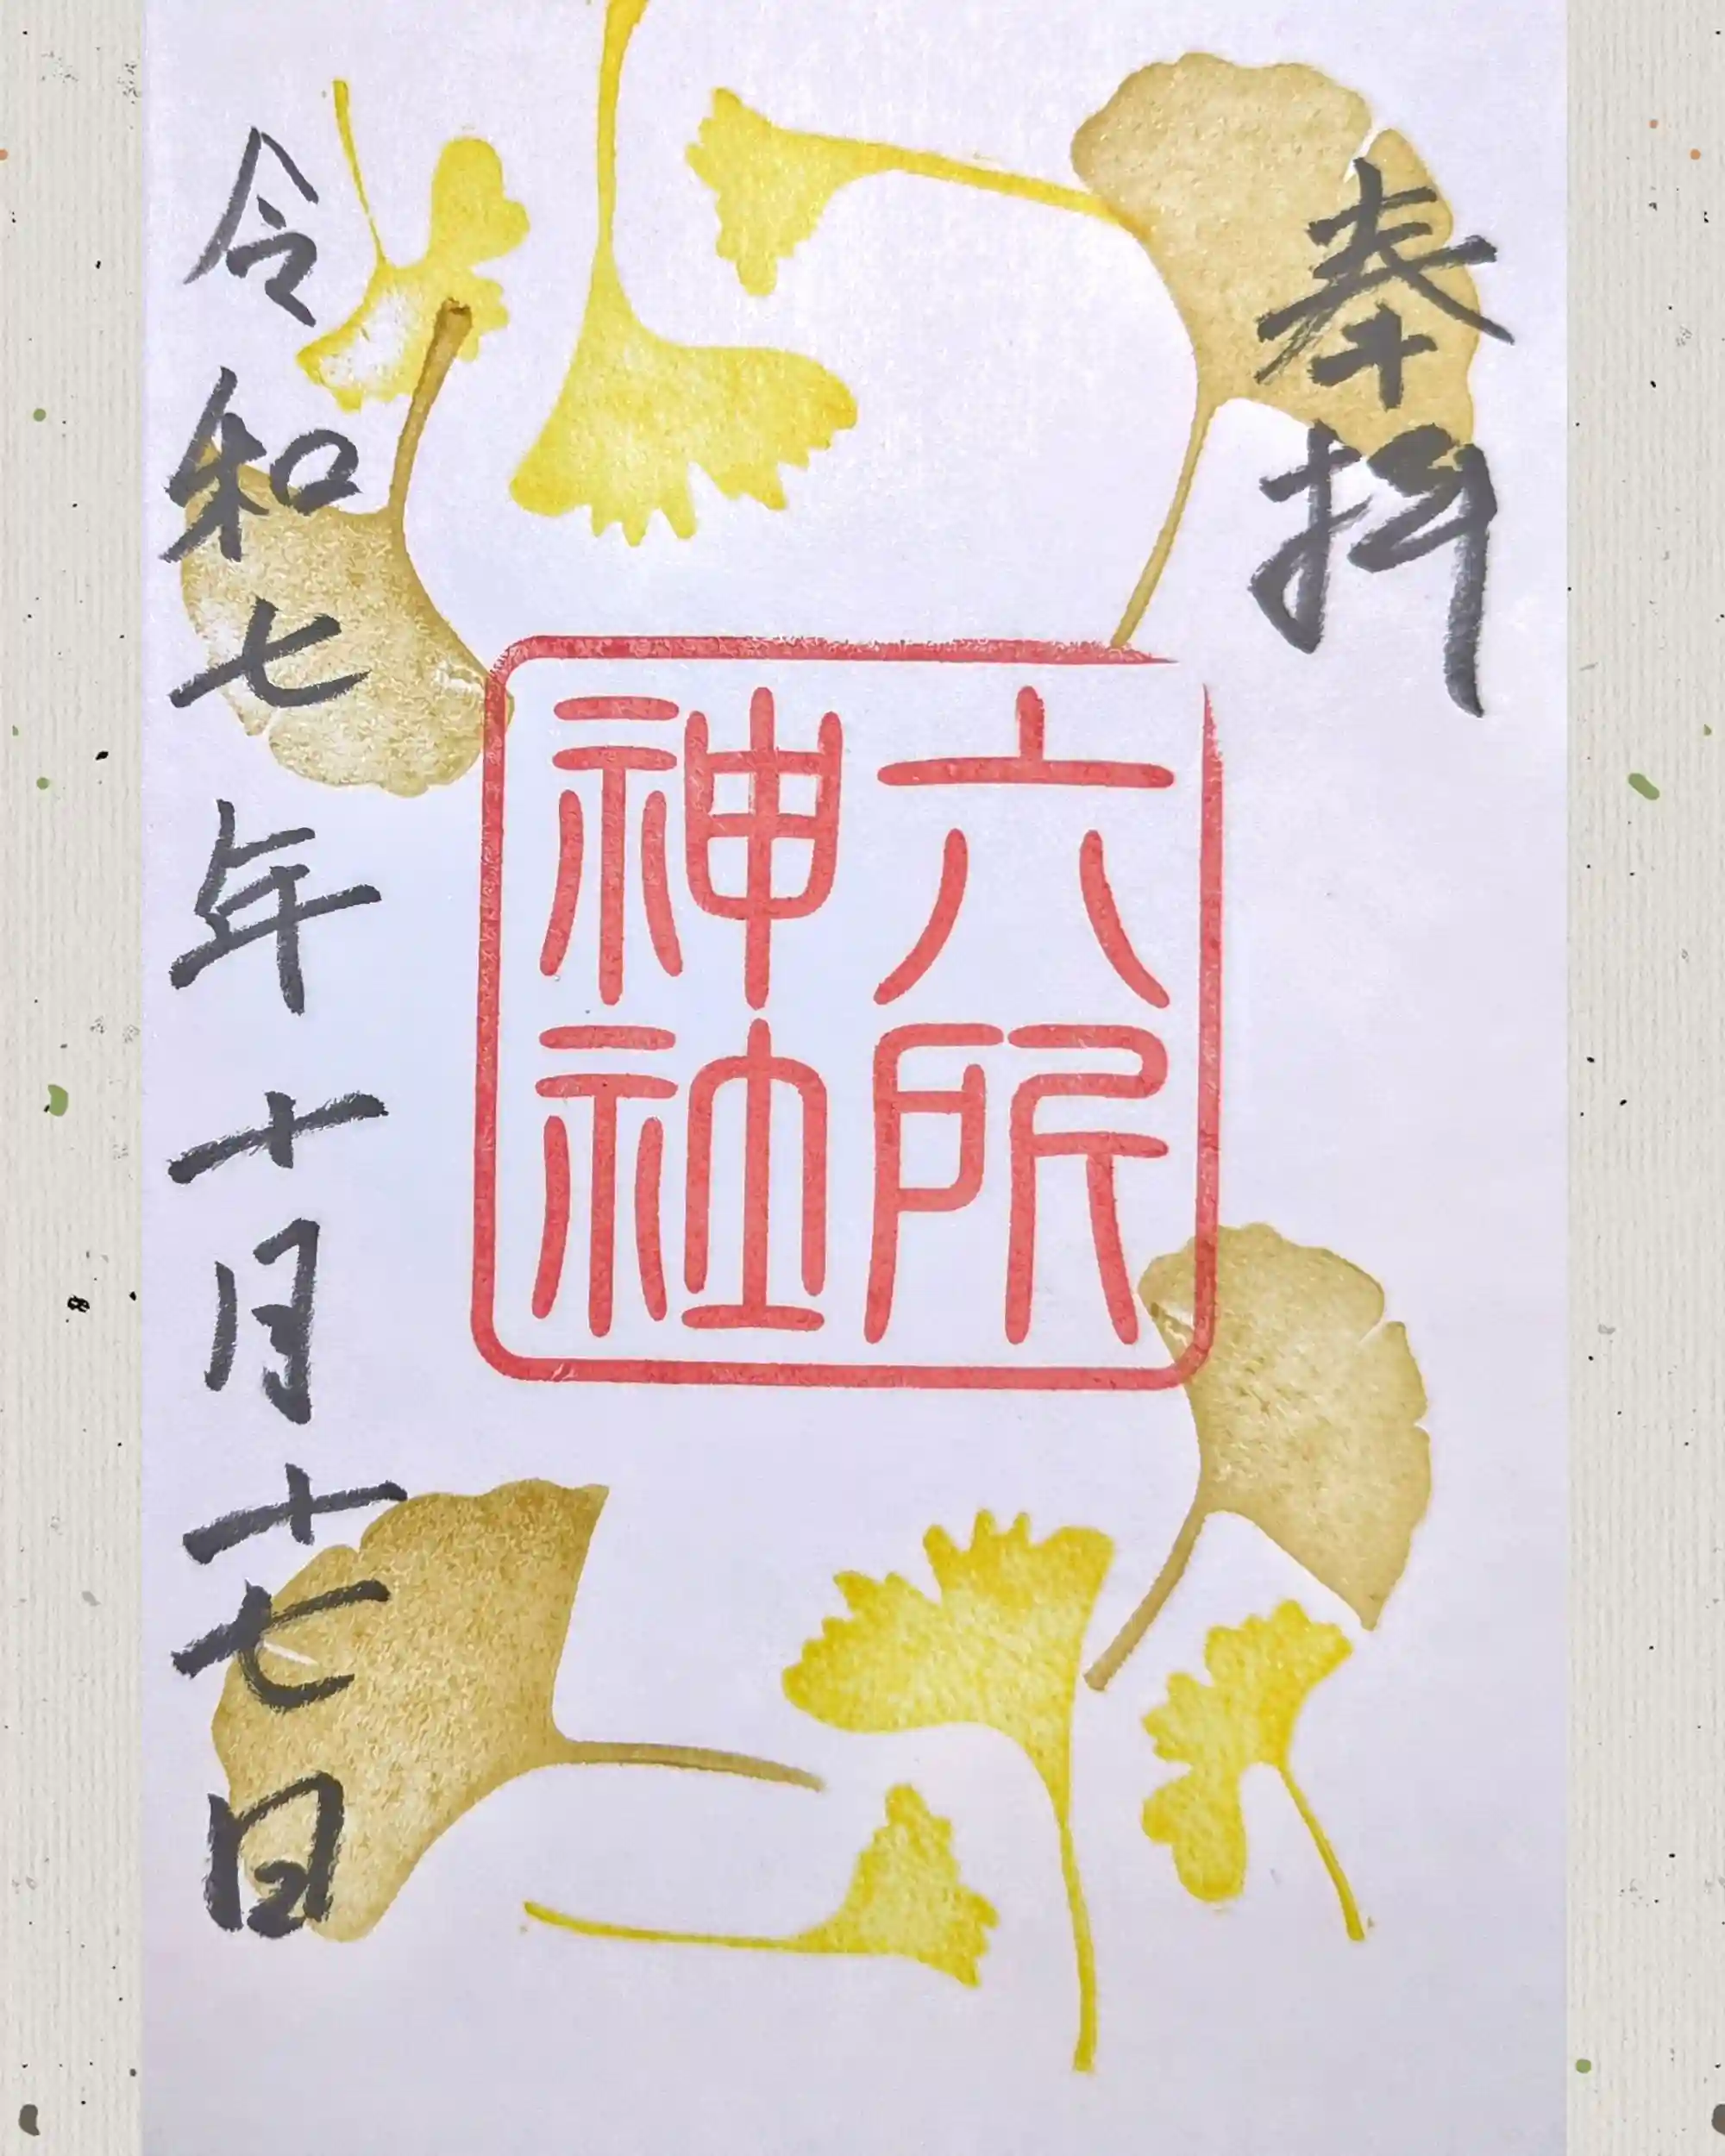 奉拝
六所
神社
令和七年十月十七日